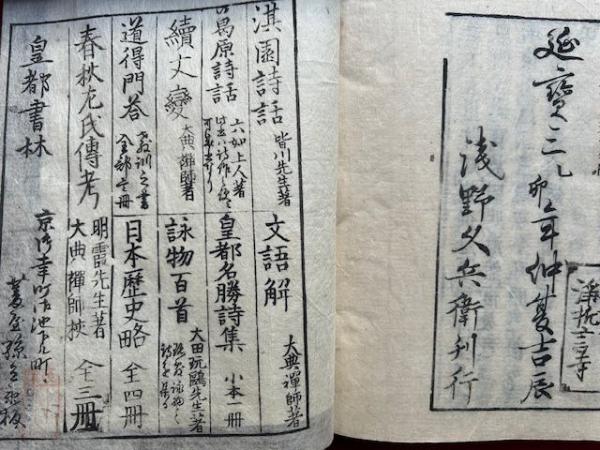 延寶三乙卯年仲夏吉辰
淺野久兵衛刊行
淇園詩話 皆川先生著
文語解 大典禪師著
葛原詩話 六如上人著
皇都名勝詩集 小本一冊
續文變 大典禪師著
詠物百首 大田玩鷗先生著
道得門答 全部三冊
日本歴史略 全四冊
春秋左氏傳考 明霞先生著 大典禪師挍 全三冊
皇都書林